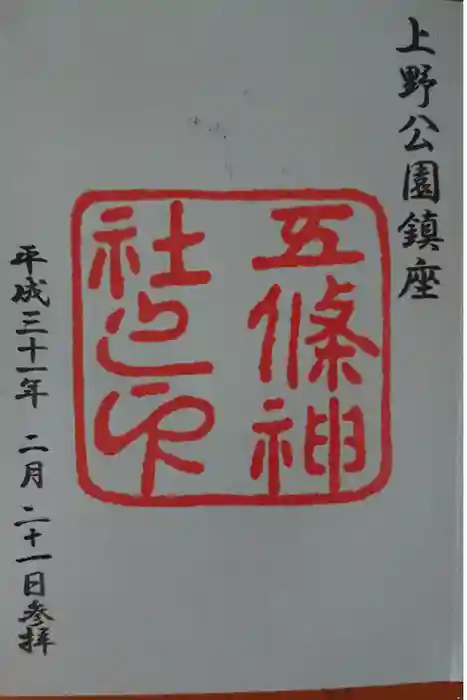 上野公園鎮座
五條神
社之印
平成三十一年 二月二十一日参拝